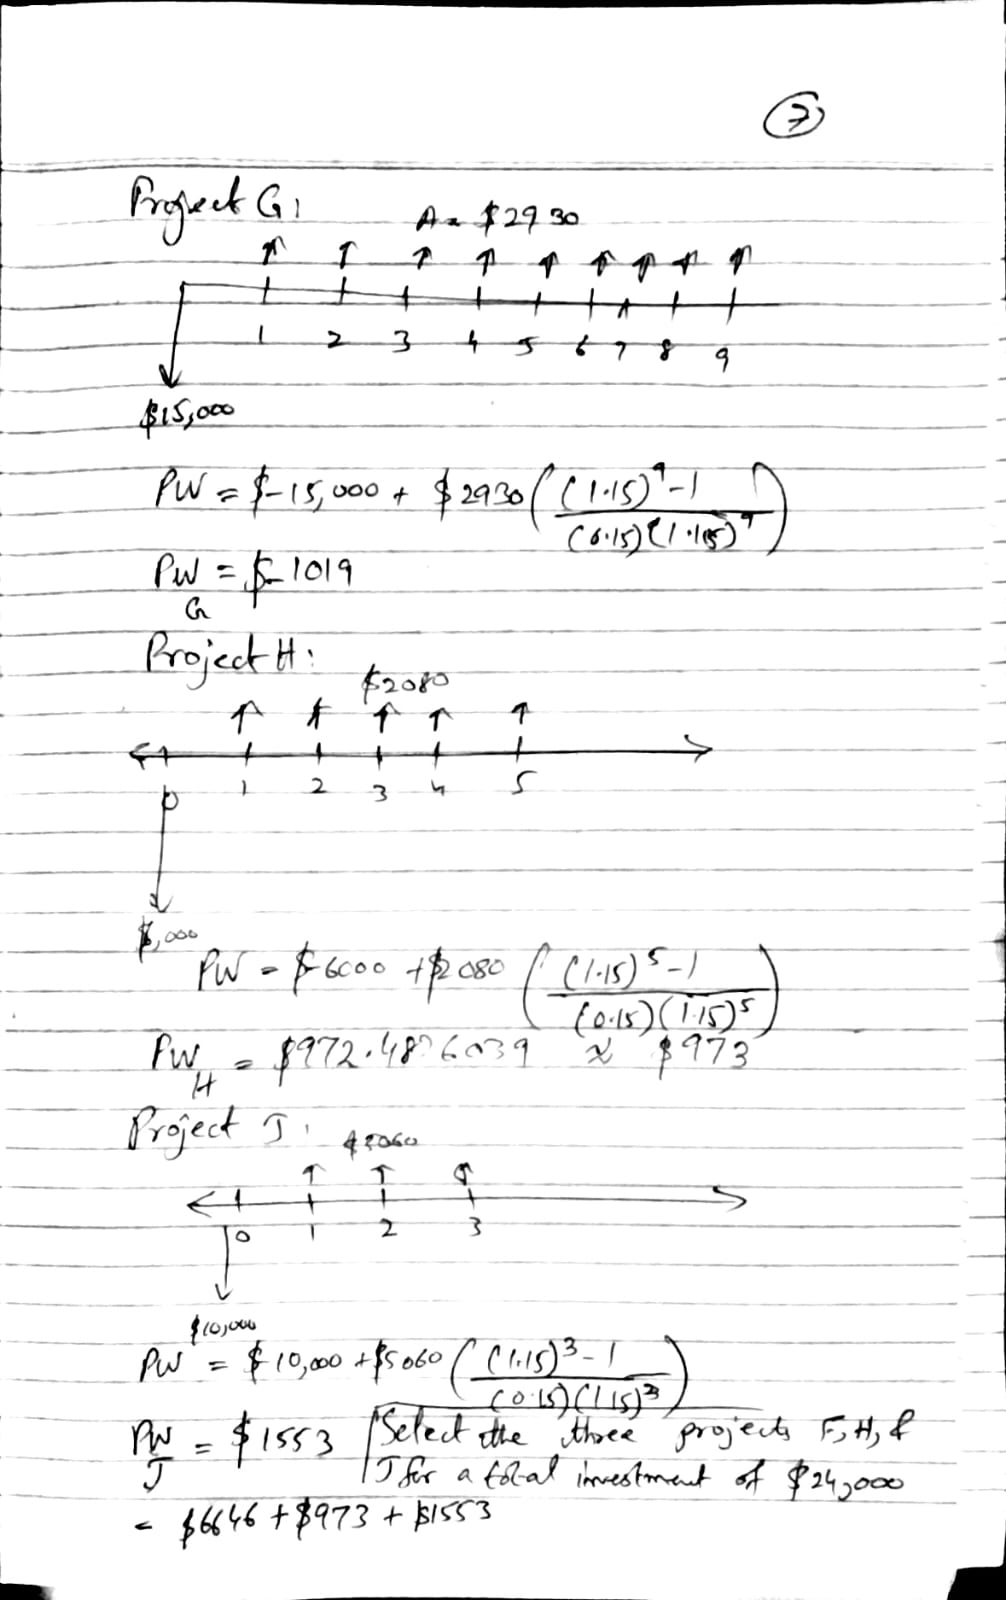 7
Project G:
A = $2930
1 2 3 4 5 6 7 8 9
$15,000
PW = $-15,000 + $2930 ( (1.15)^9 - 1 / (0.15)(1.15)^9 )
PW_G = $-1019
Project H:
$2080
0 1 2 3 4 5
PW = $-6000 + $2080 ( (1.15)^5 - 1 / (0.15)(1.15)^5 )
PW_H = $972.4876039 ≈ $973
Project J:
0 1 2 3
$10,000
PW = $-10,000 + $5060 ( (1.15)^3 - 1 / (0.15)(1.15)^3 )
PW_J = $1553
Select the three projects F, H, &
J for a total investment of $24,000
= $6646 + $973 + $1553